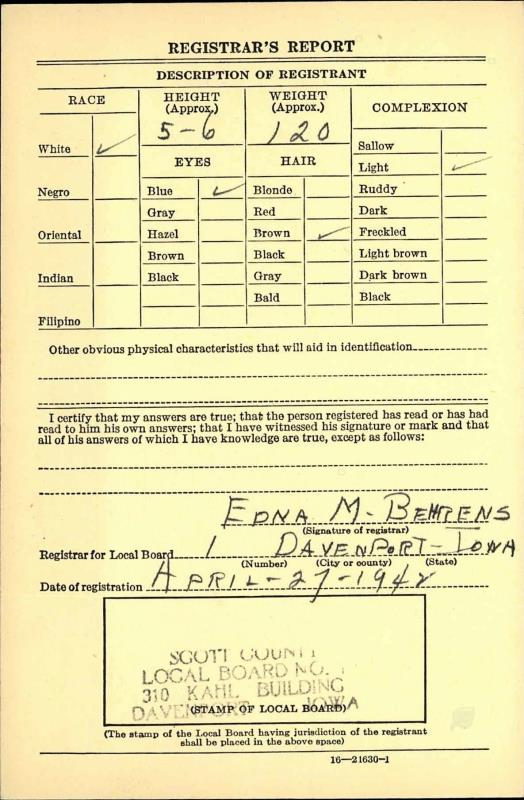 REGISTRAR'S REPORT
DESCRIPTION OF REGISTRANT
RACE
HEIGHT (Approx.)
WEIGHT (Approx.)
COMPLEXION
5-6
120
White ✓
Sallow
EYES
HAIR
Light ✓
Negro
Blue ✓
Blonde
Ruddy
Gray
Red
Dark
Oriental
Hazel
Brown ✓
Freckled
Brown
Black
Light brown
Indian
Black
Gray
Dark brown
Bald
Black
Filipino
Other obvious physical characteristics that will aid in identification
I certify that my answers are true; that the person registered has read or has had
read to him his own answers; that I have witnessed his signature or mark and that
all of his answers of which I have knowledge are true, except as follows:
EDNA M. BEHRENS
(Signature of registrar)
Registrar for Local Board 1 DAVENPORT-IOWA
(Number) (City or county) (State)
Date of registration APRIL-27-1942
SCOTT COUNTY
LOCAL BOARD NO. 1
310 KAHL BUILDING
DAVENPORT IOWA
(STAMP OF LOCAL BOARD)
(The stamp of the Local Board having jurisdiction of the registrant
shall be placed in the above space)
16—21630-1